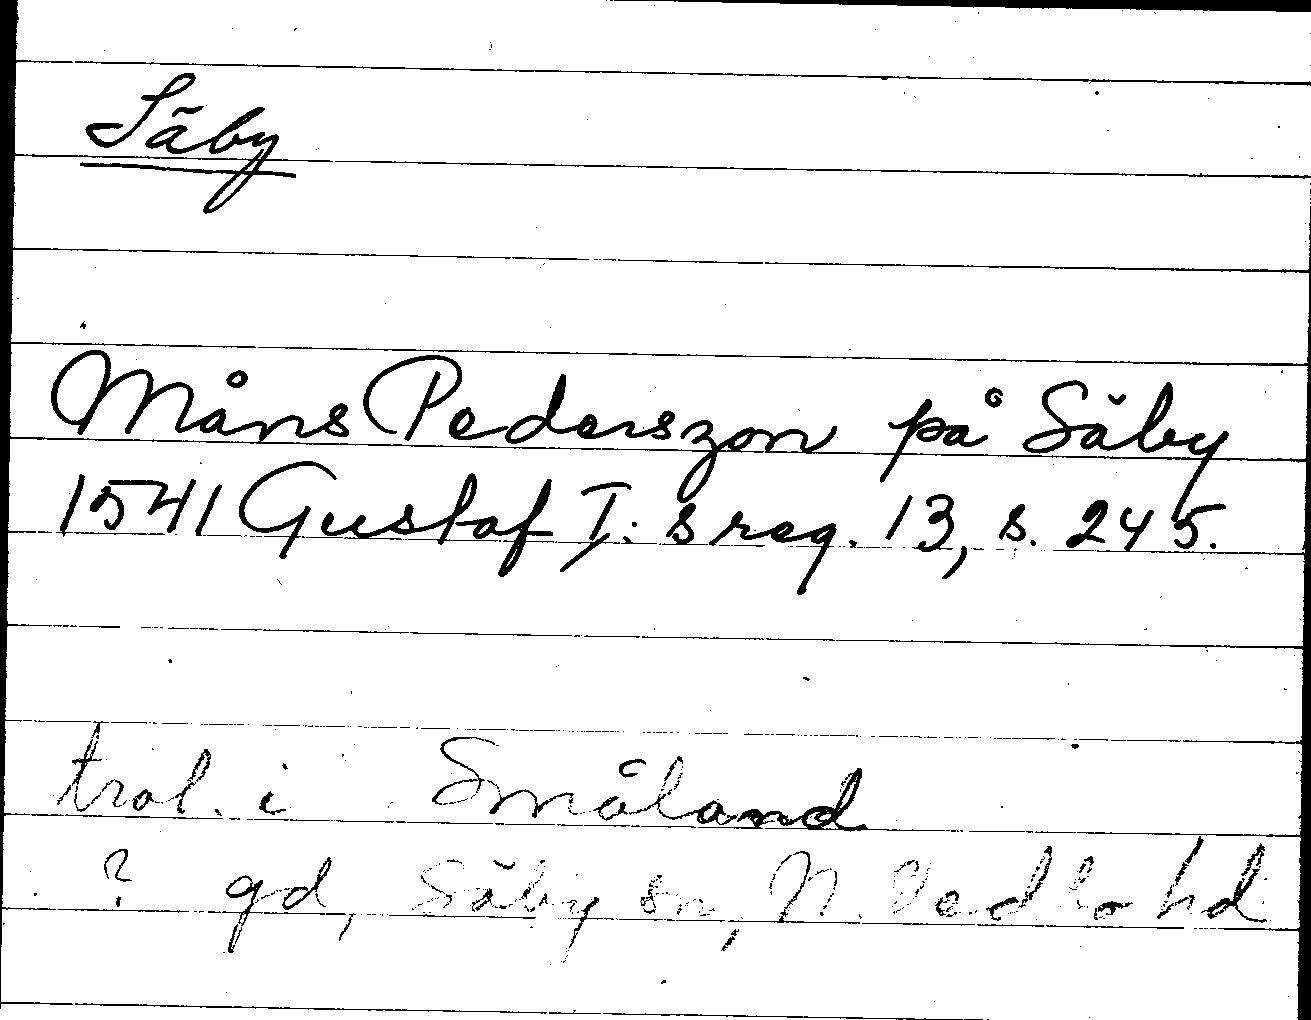 Säby
Måns Pederszon på Säby
1541 Gustaf I: s reg. 13, s. 245.
trol. i Småland
? gd, Säby sn, N. Vedbo hd